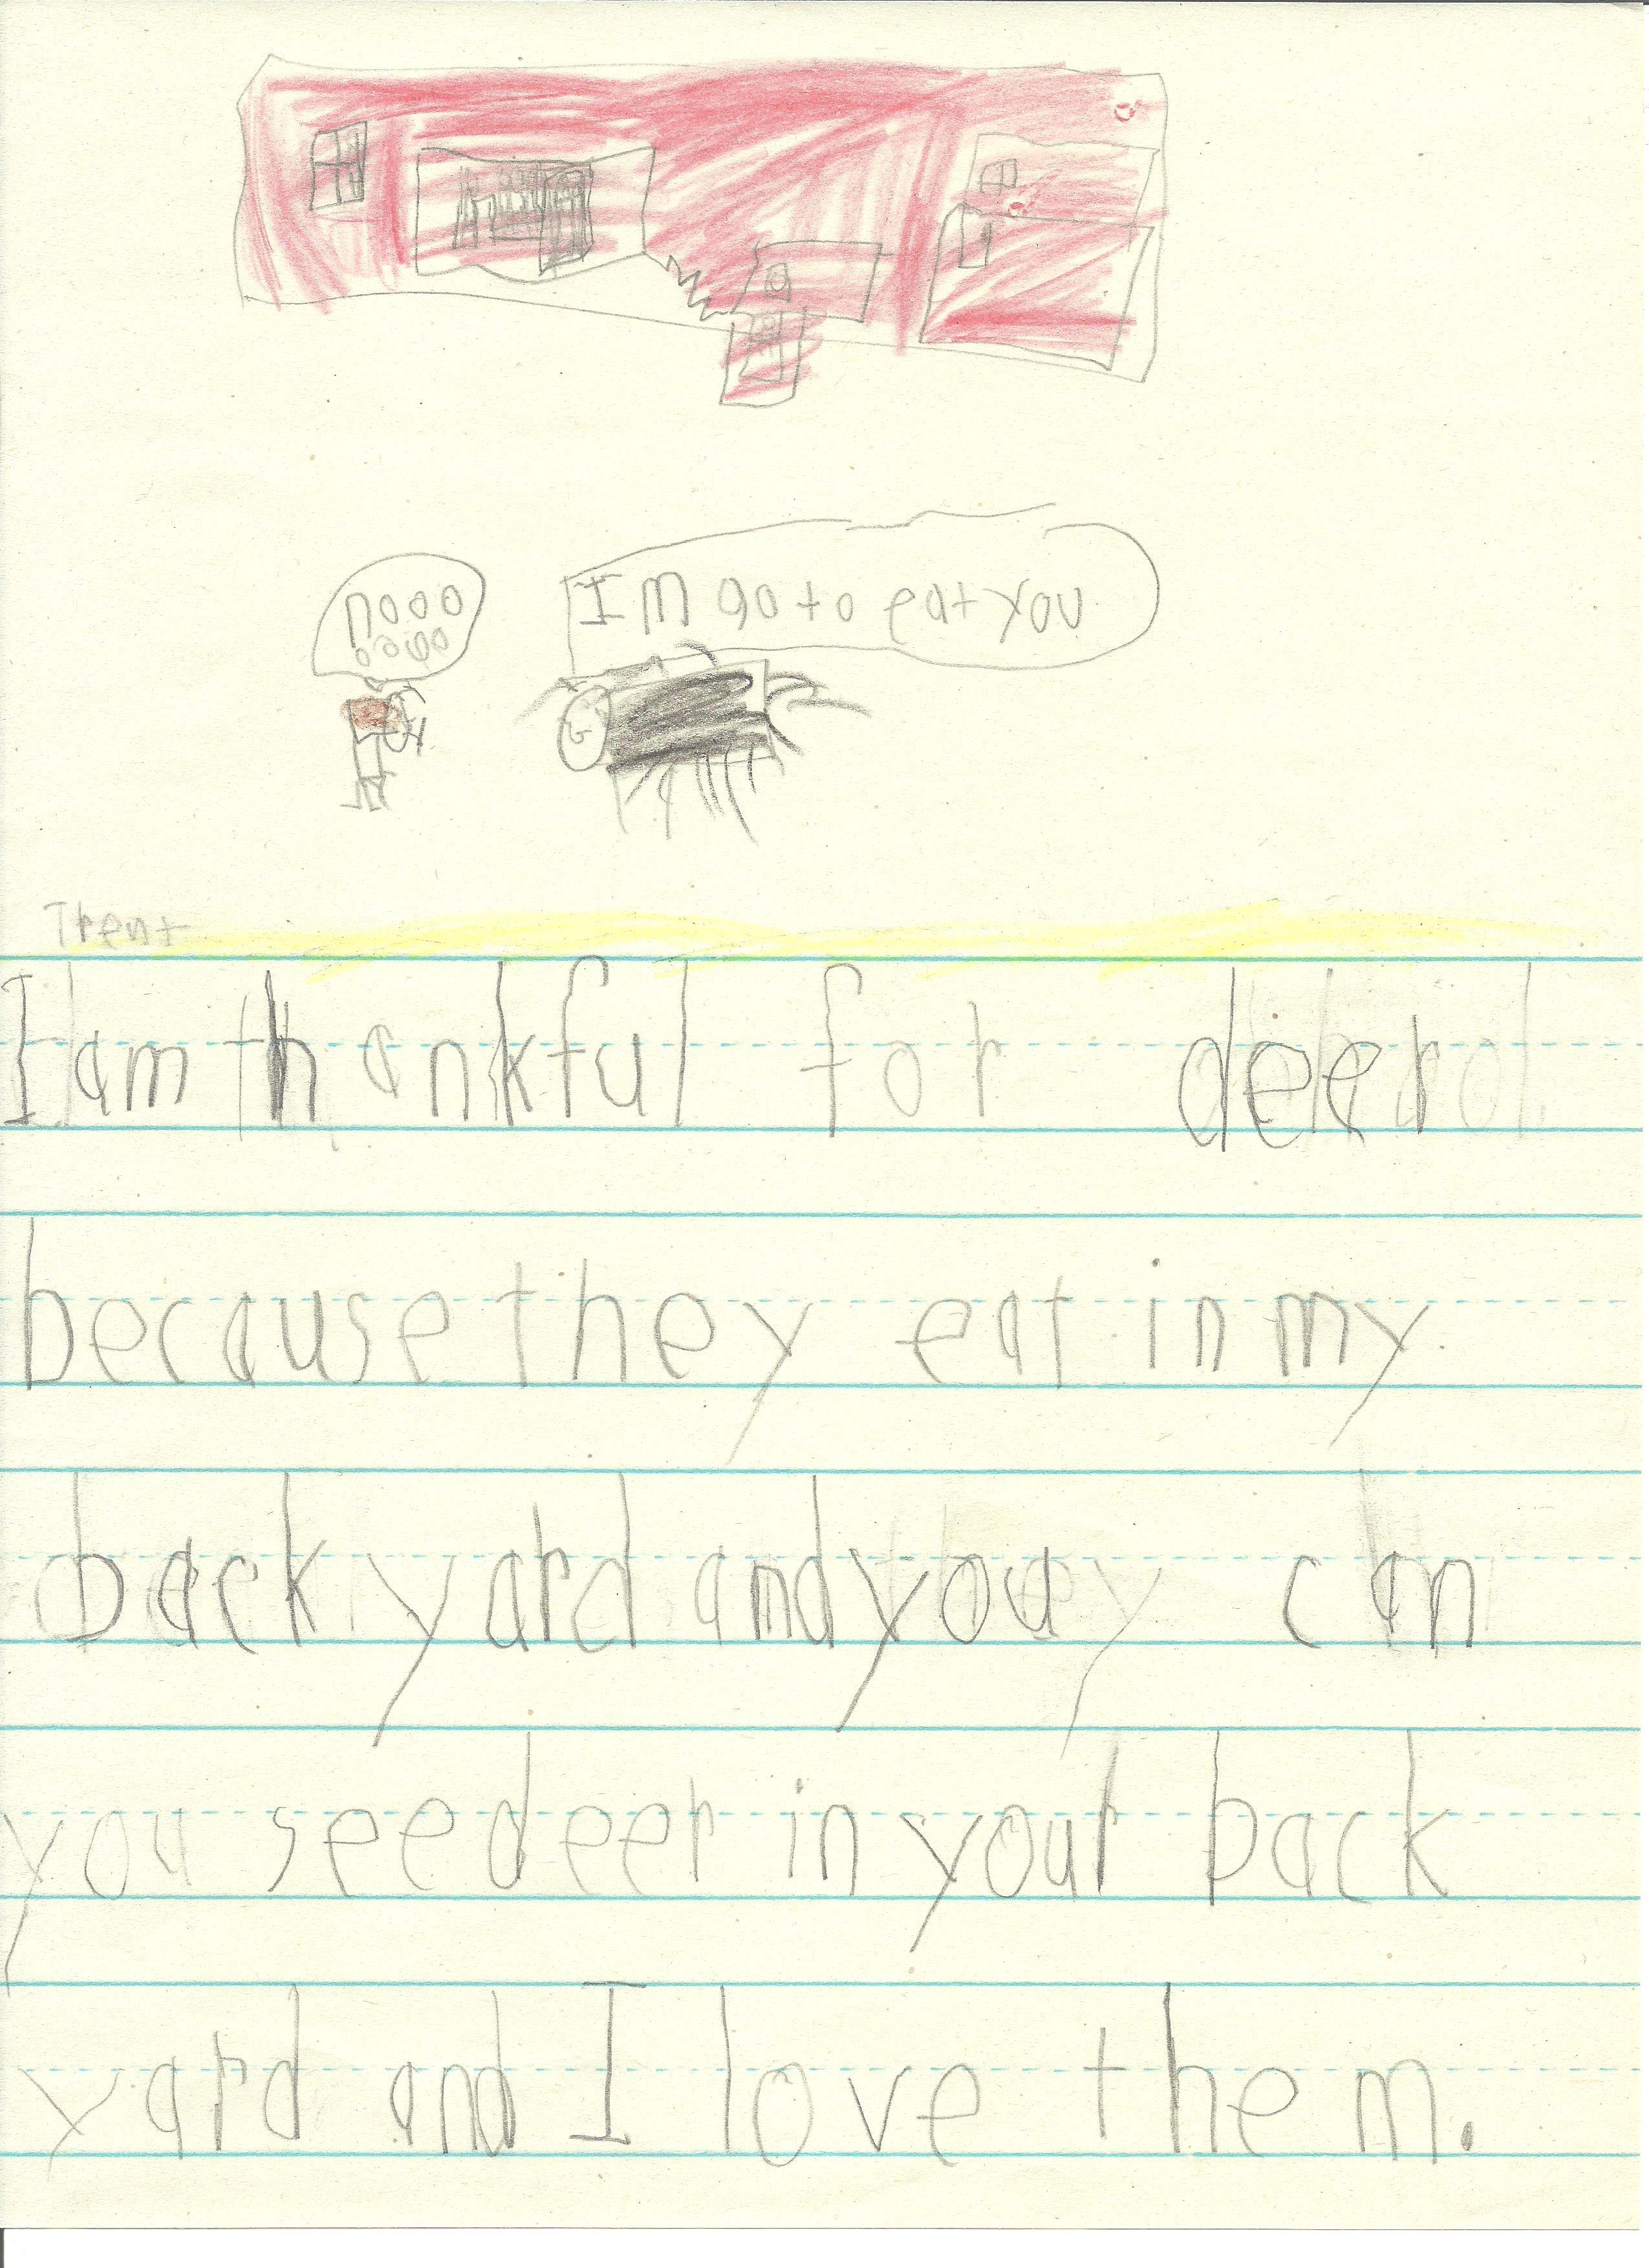 nooo
ooooo
I m go to eat you
Trent
I am thankful for deer
because they eat in my
back yard and you can
you see deer in your back
yard and I love them.